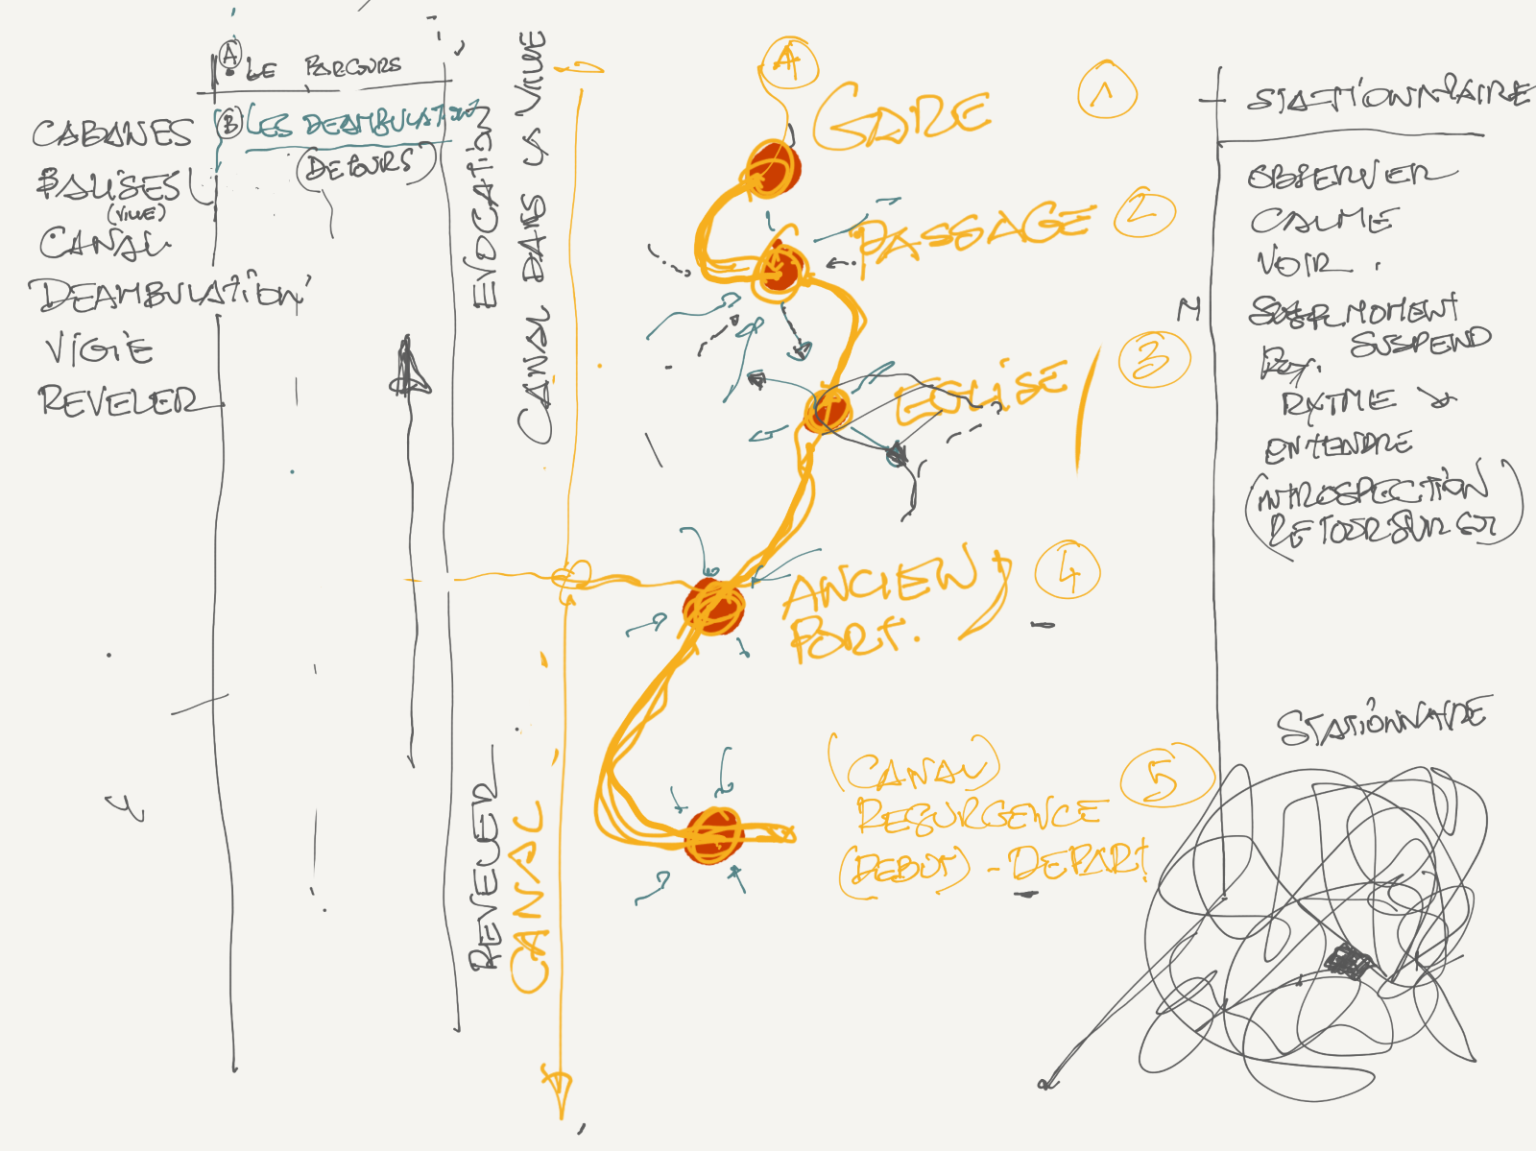 A LE PARCOURS
B LES DEAMBULATIONS
(DETOURS)
CABANES
BALISES
(VILLE)
CANAL
DEAMBULATION
VIGIE
REVELER
EVOCATION
CANAL DANS LA VILLE
REVELER
CANAL
A
GARE
1
PASSAGE
2
EGLISE
3
ANCIEN
PORT.
4
(CANAL)
RESURGENCE
5
(DEBUT) - DEPART
STATIONNAIRE
OBSERVER
CALME
VOIR
MOMENT
SUSPEND
RYTME
ENTENDRE
(INTROSPECTION
RETOUR SUR SOI)
STATIONNAIRE